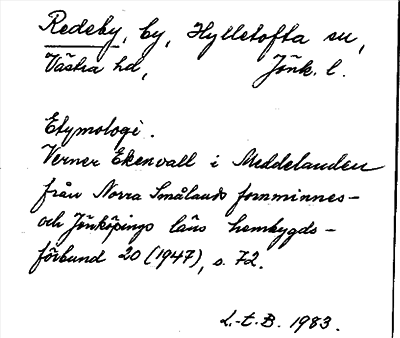 Redeby, by, Hylletofta sn,
Västra hd, Jönk. l.
Etymologi.
Verner Ekenvall i Meddelanden
från Norra Smålands fornminnes-
och Jönköpings läns hembygds-
förbund 20 (1947), s. 72.
L.-t. B. 1983.